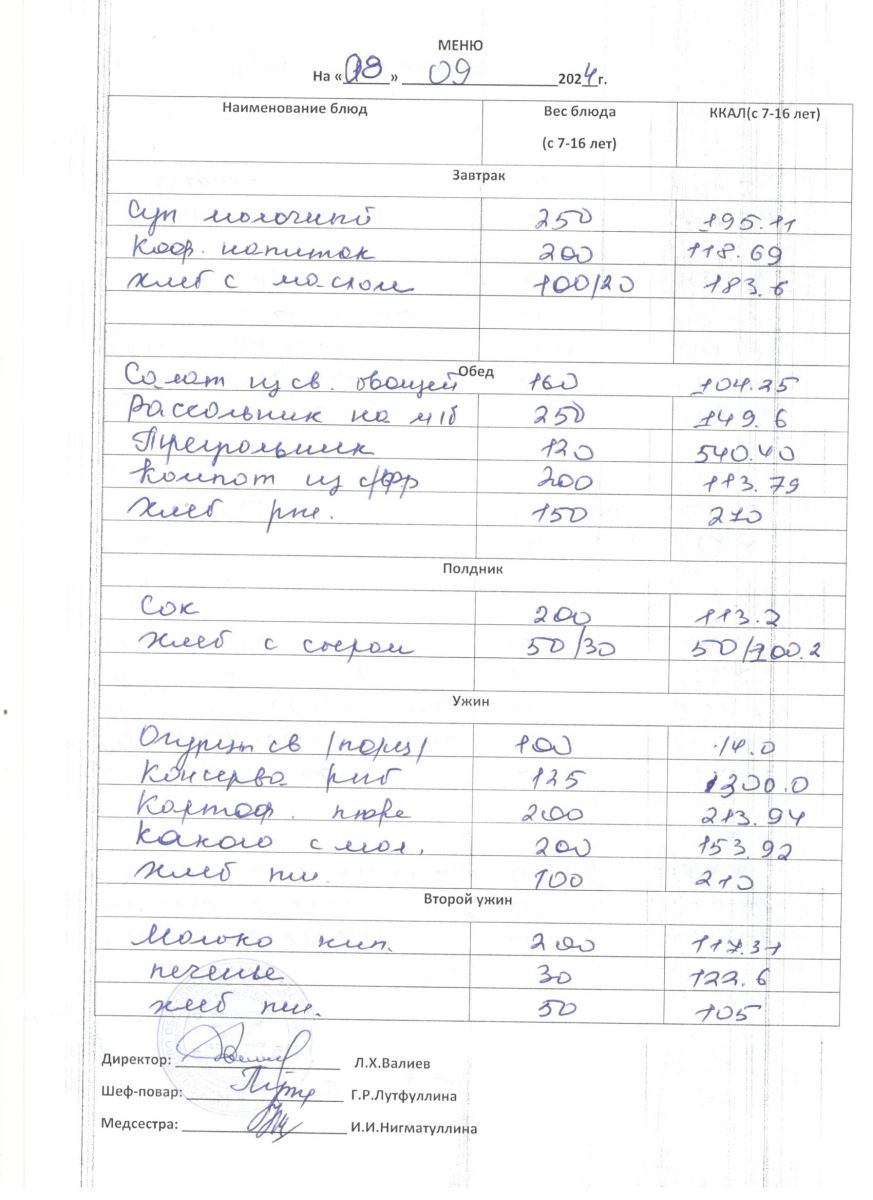 МЕНЮ
На «08» 09 2024 г.
Наименование блюд Вес блюда (с 7-16 лет) ККАЛ(с 7-16 лет)
Завтрак
Суп молочный 250 195.11
Коф. напиток 200 118.69
Хлеб с маслом 100/20 183.6
Обед
Салат из св. овощей 160 104.25
Рассольник на м/б 250 149.6
Треугольник 120 540.40
Компот из с/фр 200 113.79
Хлеб рж. 150 210
Полдник
Сок 200 113.2
Хлеб с сыром 50/30 50/100.2
Ужин
Огурцы св /порц/ 100 14.0
Консерва рыб 125 1300.0
Картоф. пюре 200 213.94
Какого с мол. 200 153.92
Хлеб пш. 100 210
Второй ужин
Молоко кип. 200 117.31
печенье 30 122.6
хлеб пш. 50 105
Директор: Л.Х.Валиев
Шеф-повар: Г.Р.Лутфуллина
Медсестра: И.И.Нигматуллина